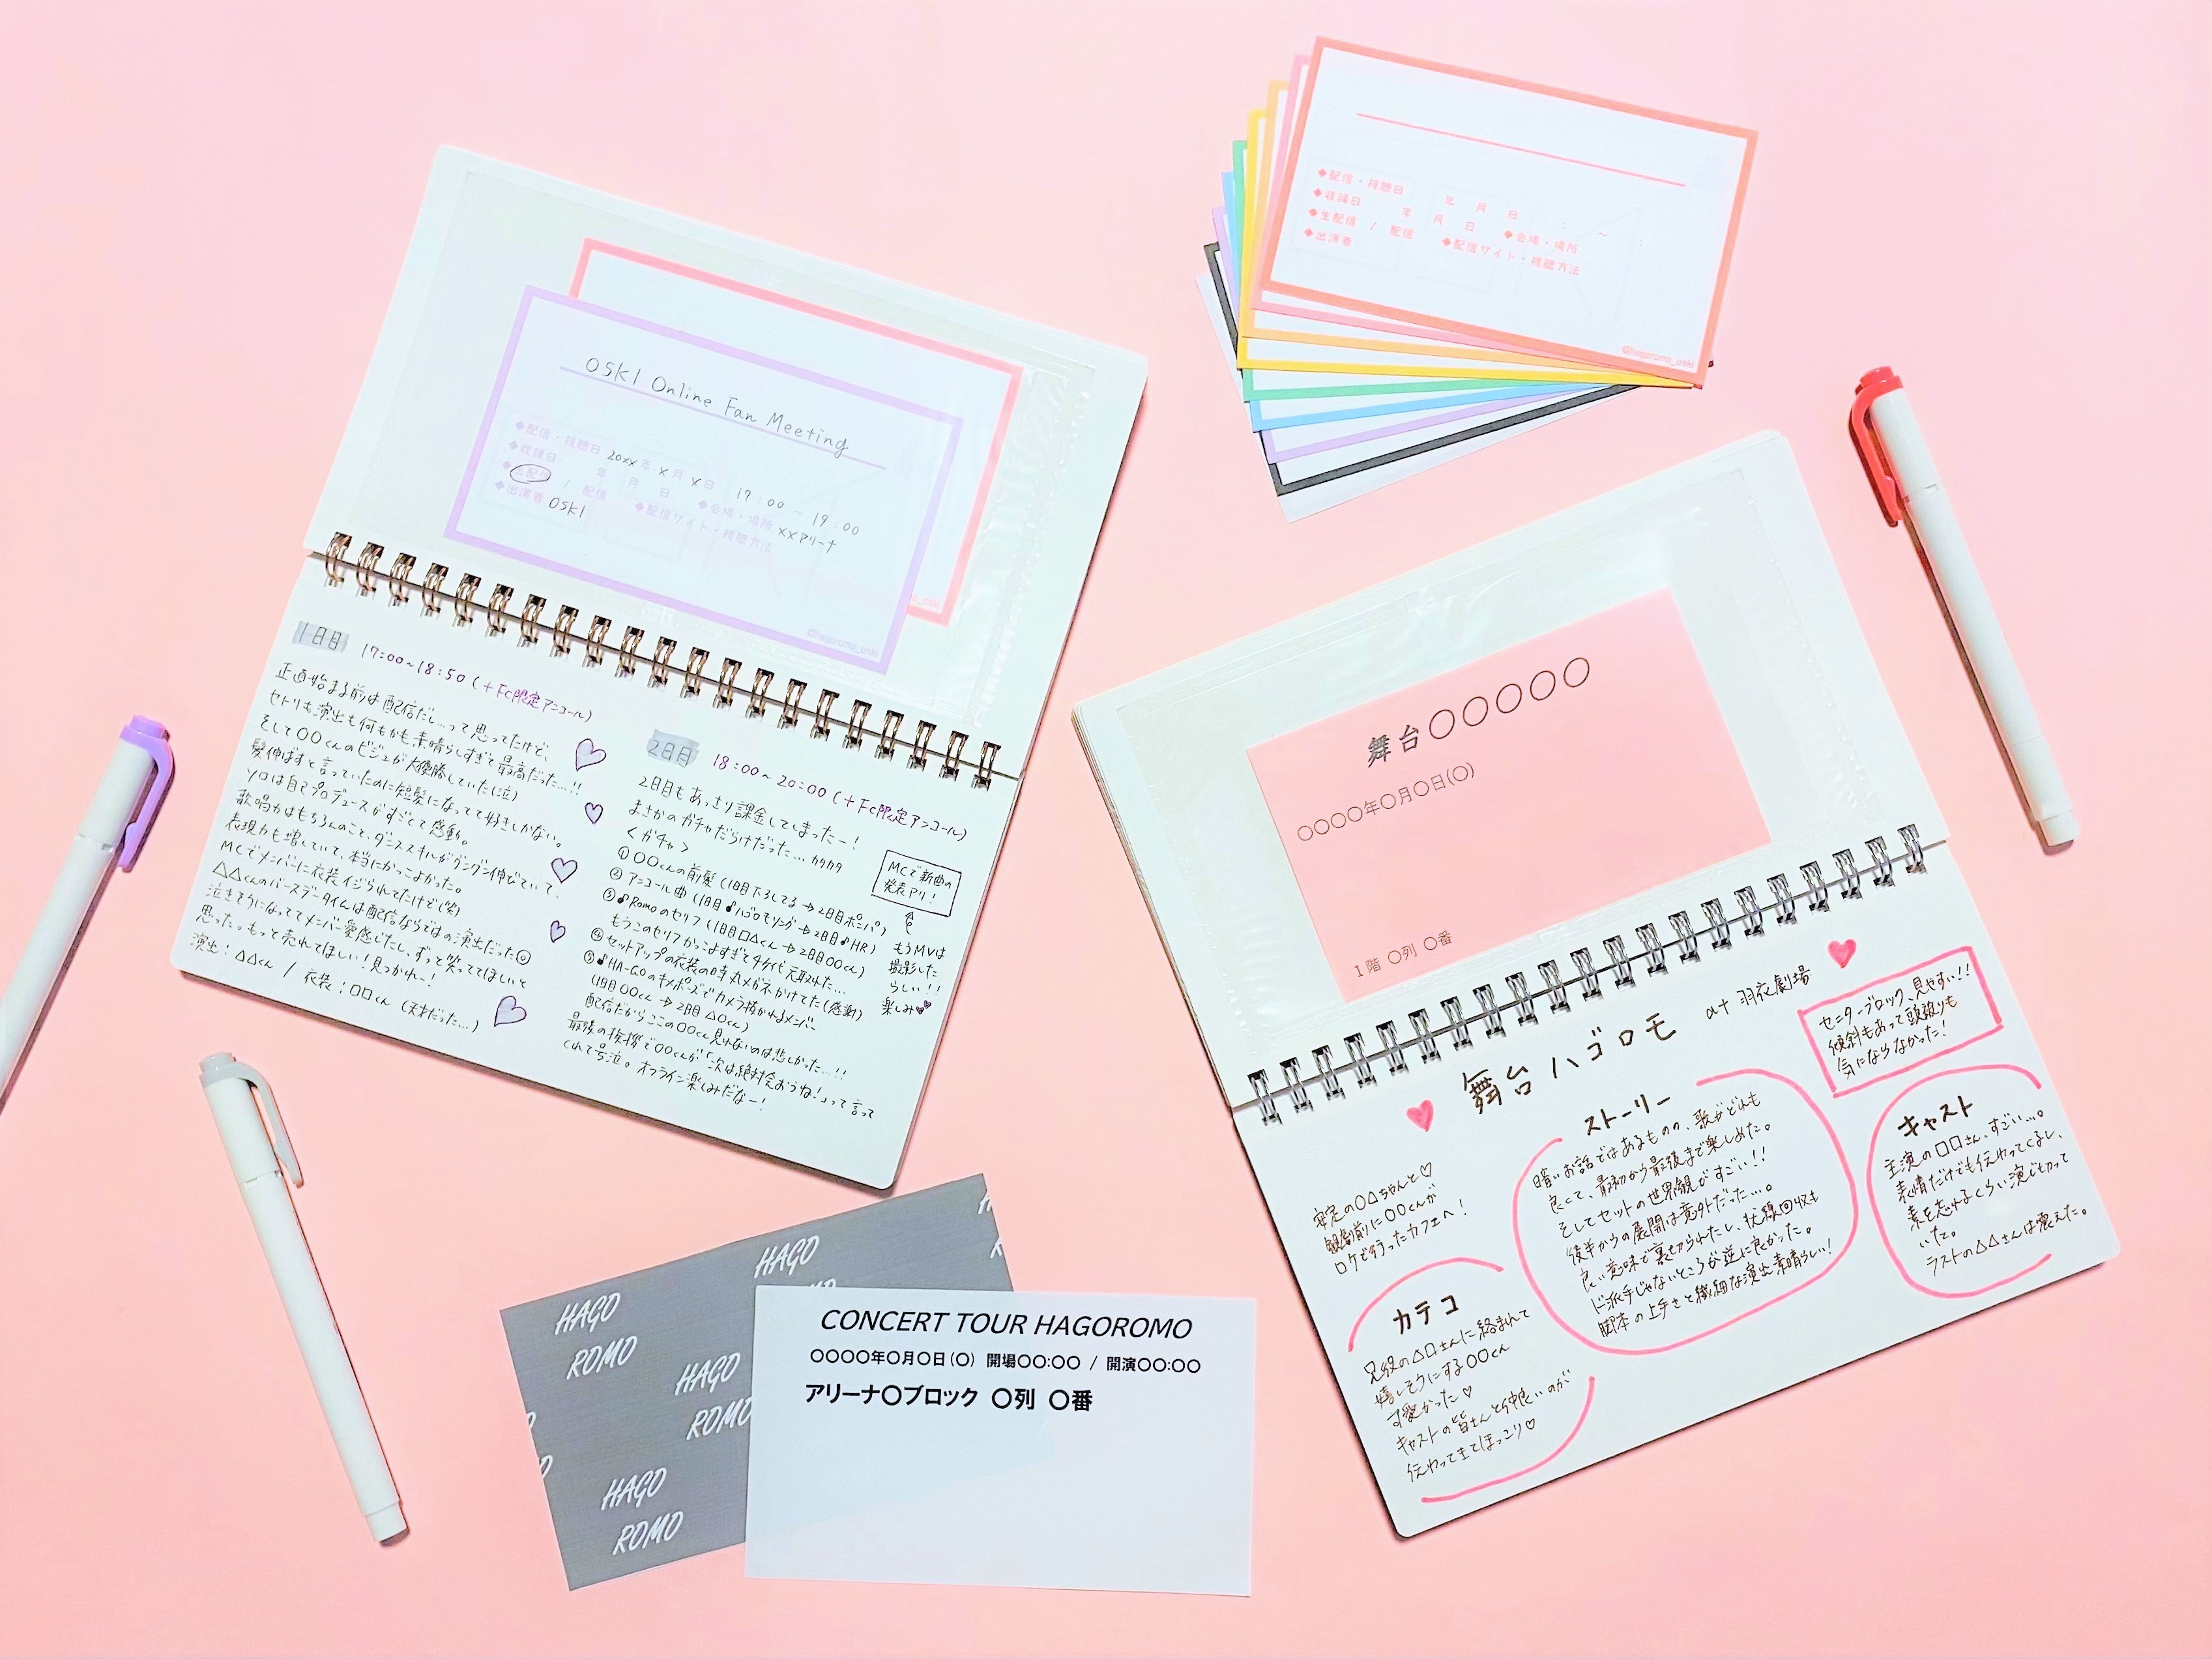 OSKI Online Fan Meeting
◆配信・視聴日 20xx年 x月 x日 17:00 ~ 19:00
◆収録日 年 月 日 ◆会場・場所 xxアリーナ
◆生配信 / 配信 ◆配信サイト・視聴方法
◆出演者 OSKI
@hagoromo_oski
1日目 17:00~18:50 (+FC限定アンコール)
正直始まる前は配信だし…って思ってたけど、
セトリも演出も何もかも素晴らしすぎて最高だった…!!
そして〇〇くんのビジュが大優勝していた(泣)
髪伸ばすと言っていたのに短髪になってて好きしかない。
ソロは自己プロデュースがすごくて感動。
歌唱力はもちろんのこと、ダンススキルがグングン伸びていて、
表現力も増していて、本当にかっこよかった。
MCでメンバーに衣装イジられてたけど(笑)
△△くんのバースデータイムは配信ならではの演出だった◎
泣きそうになっててメンバー愛感じたし、ずっと笑っててほしいと
思った。もって売れてほしい!見つかれ~!
演出:△△くん / 衣装:□□くん (天才だった…)
2日目 18:00~20:00 (+FC限定アンコール)
2日目もあっさり課金してしまったー!
まさかのガチャだらけだった… カタカタ
<ガチャ>
①〇〇くんの前髪(1日目下ろしてる→2日目ポンパ)
②アンコール曲(1日目♪ハゴロモリング→2日目♪HR)
③♪Romoのセリフ(1日目□△くん→2日目〇〇くん)
もうこのセリフかっこよすぎてタケイ代元取れた…
④セットアップの衣装の時丸メガネかけてた(感謝)
⑤♪HA-GOのキメポーズでカメラ抜かれるメンバー
(1日目〇〇くん→2日目△〇くん)
配信だからここの〇〇くん見れないのは悲しかった…!!
最後の挨拶で〇〇くんが「次は絶対会おうね!」って言って
くれて号泣。オフライン楽しみだなー!
MCで新曲の
発表アリ!
もうMVは
撮影した
らしい!!
楽しみ
◆配信・視聴日 年 月 日 : ~ :
◆収録日 年 月 日 ◆会場・場所
◆生配信 / 配信 ◆配信サイト・視聴方法
◆出演者
@hagoromo_oski
舞台〇〇〇〇〇
〇〇〇〇年〇月〇日(〇)
1階 〇列 〇番
舞台ハゴロモ at 羽衣劇場
センターブロック、見やすい!!
傾斜もあって頭被りも
気にならなかった!
安定の〇△ちゃんと♡
観劇前に〇〇くんが
ロケで行ったカフェへ!
ストーリー
暗いお話ではあるものの、歌がどれも
良くて、最初から最後まで楽しめた。
そしてセットの世界観がすごい!!
後半からの展開は意外だった…。
良い意味で裏切られたし、伏線回収も
ド派手じゃないところが逆に良かった。
脚本の上手さと繊細な演出素晴らしい!
キャスト
主演の□□さん、すごい…。
表情だけでも伝わってくるし、
素を忘れるくらい演じ切って
いた。
ラストの△△さんは震えた。
カテコ
兄役の△□さんに絡まれて
嬉しそうにする〇〇くん
可愛かった♡
キャストの皆さんと仲良いのが
伝わってきてほっこり♡
HAGO
ROMO
HAGO
ROMO
HAGO
ROMO
HAGO
CONCERT TOUR HAGOROMO
〇〇〇〇年〇月〇日(〇) 開場〇〇:〇〇 / 開演〇〇:〇〇
アリーナ〇ブロック 〇列 〇番